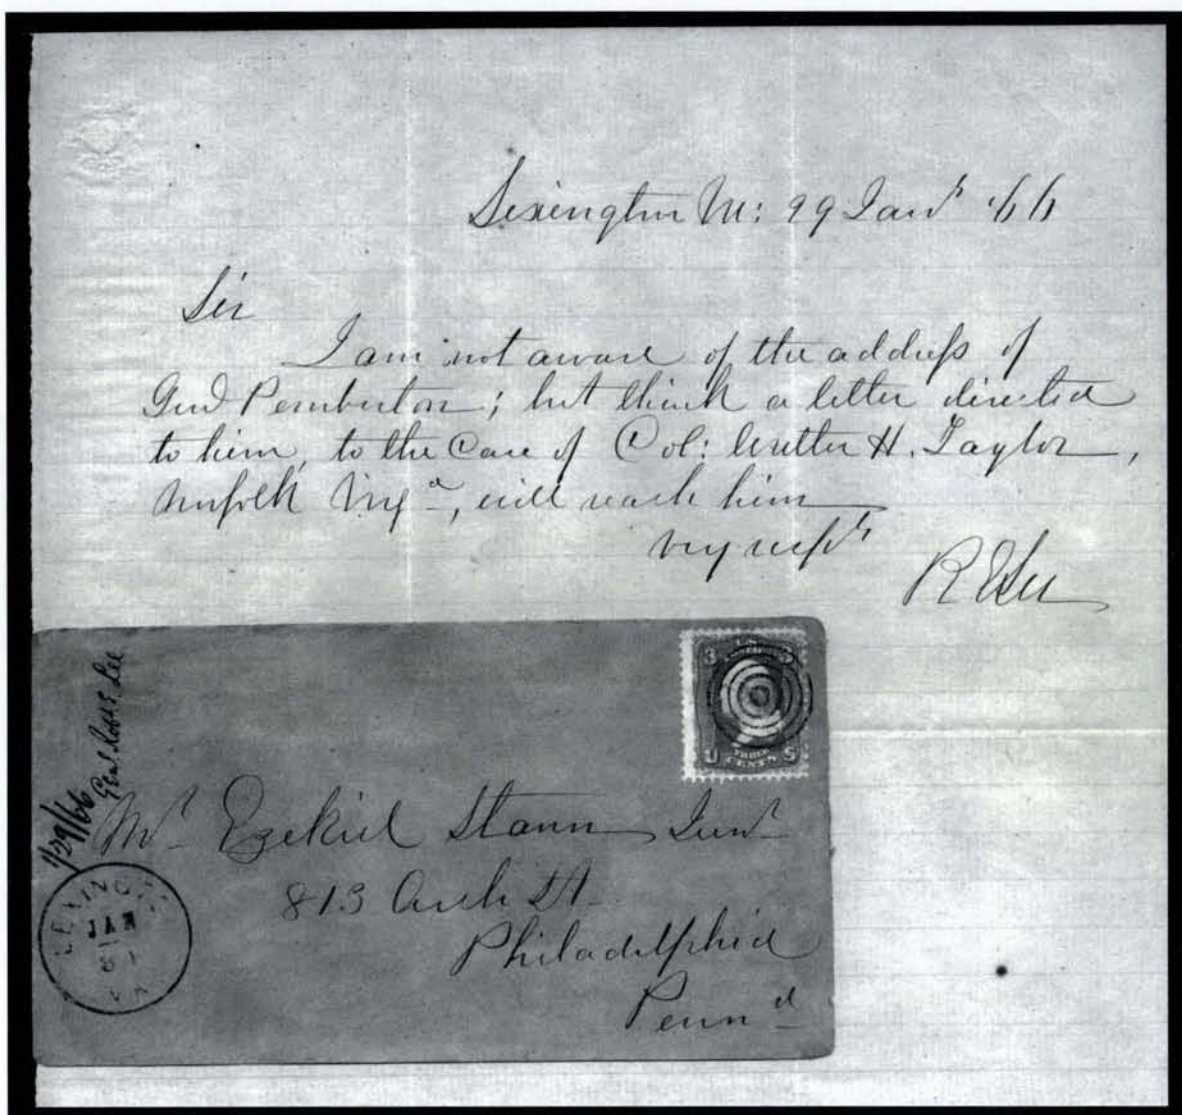 Lexington Va: 29 Jany '66
Sir
I am not aware of the address of
Genl Pemberton; but think a letter directed
to him, to the Care of Col: Walter H. Taylor,
Norfolk Virga, will reach him
Very respy
R E Lee
Genl. Robt E Lee
1/29/66
U.S.
3 3
THREE
CENTS
U S
Mr Ezekiel Junr
813 Arch St
Philadelphia
Penna
LEXINGTON
JAN
31
VA